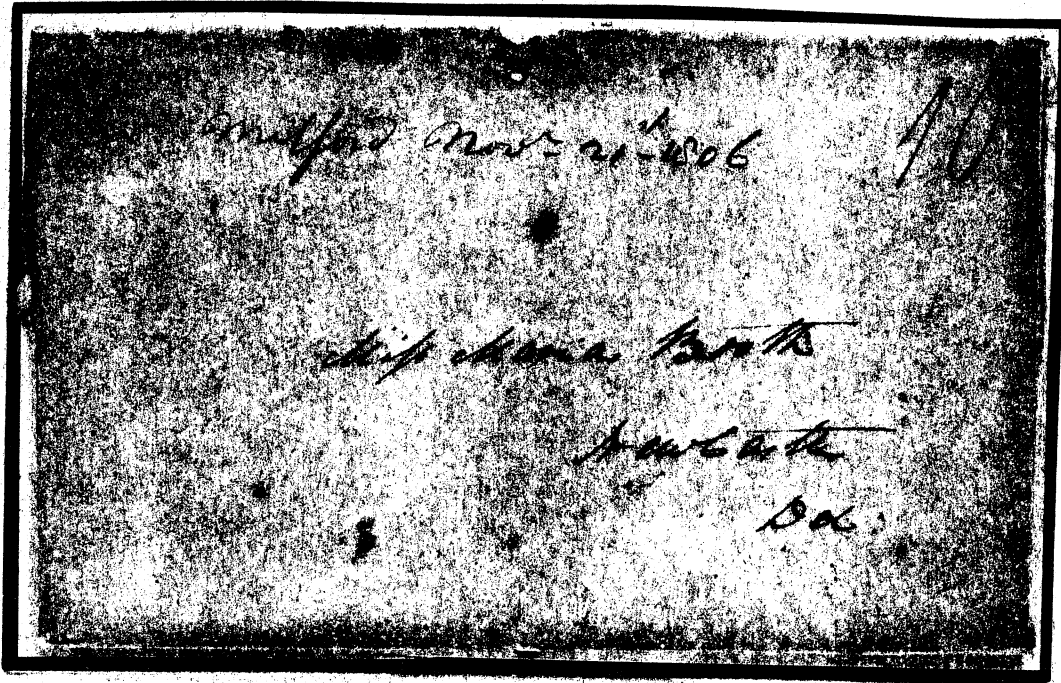 Milford Novr 21st 1806 10
Miss Maria Booth
NewCastle
Del: